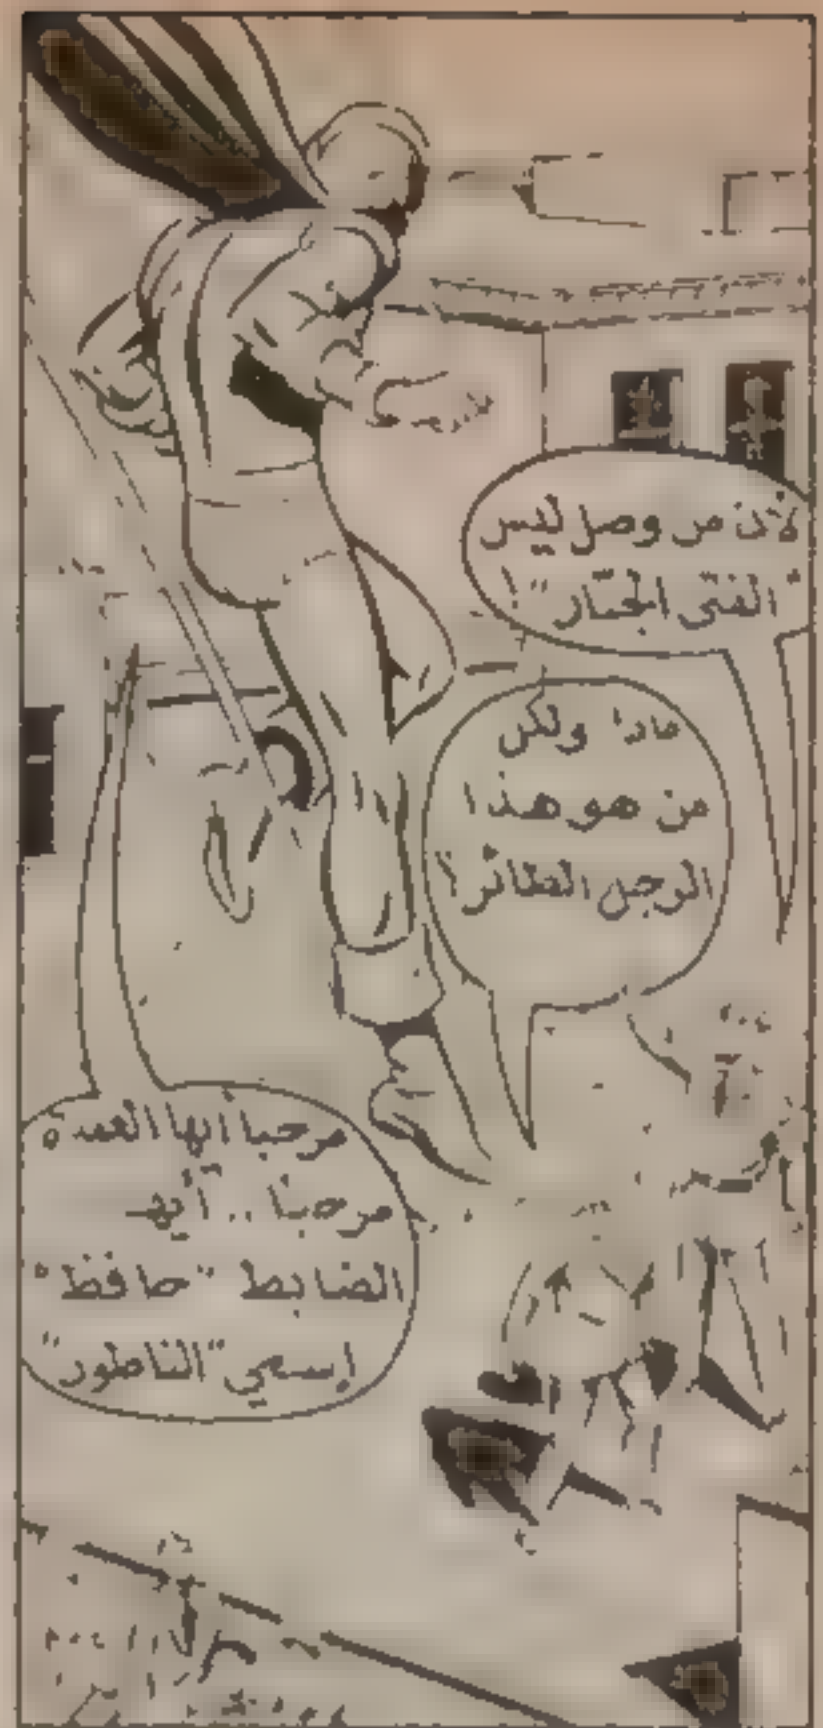 لأن من وصل ليس
"الفتى الجبّار"!
ماذا ولكن
من هو هذا
الرجل الطائر؟
مرحبا أيها العمدة
مرحبا .. أيها
الضابط "حافظ"
إسمي "الناطور"